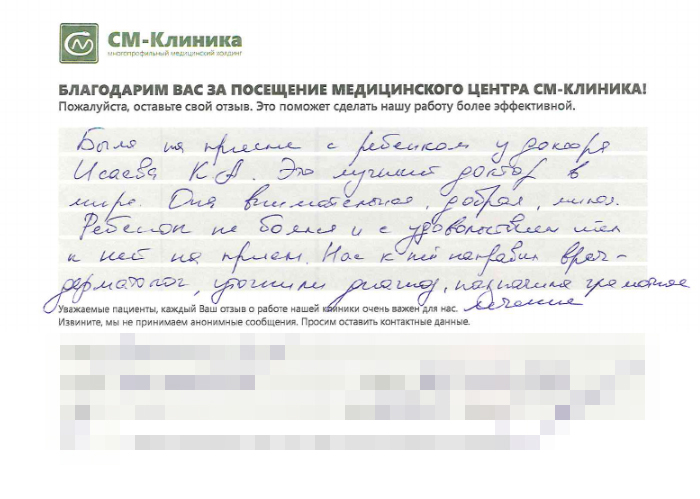 СМ-Клиника
многопрофильный медицинский холдинг
БЛАГОДАРИМ ВАС ЗА ПОСЕЩЕНИЕ МЕДИЦИНСКОГО ЦЕНТРА СМ-КЛИНИКА!
Пожалуйста, оставьте свой отзыв. Это поможет сделать нашу работу более эффективной.
Была на приеме с ребенком у доктора
Исаева К.А. Это лучший доктор в
мире. Она внимательная, добрая, милая.
Ребенок не боялся и с удовольствием шел
к ней на прием. Нас к ней направил врач-
дерматолог, уточнили диагноз, назначила грамотное
лечение
Уважаемые пациенты, каждый Ваш отзыв о работе нашей клиники очень важен для нас.
Извините, мы не принимаем анонимные сообщения. Просим оставить контактные данные.